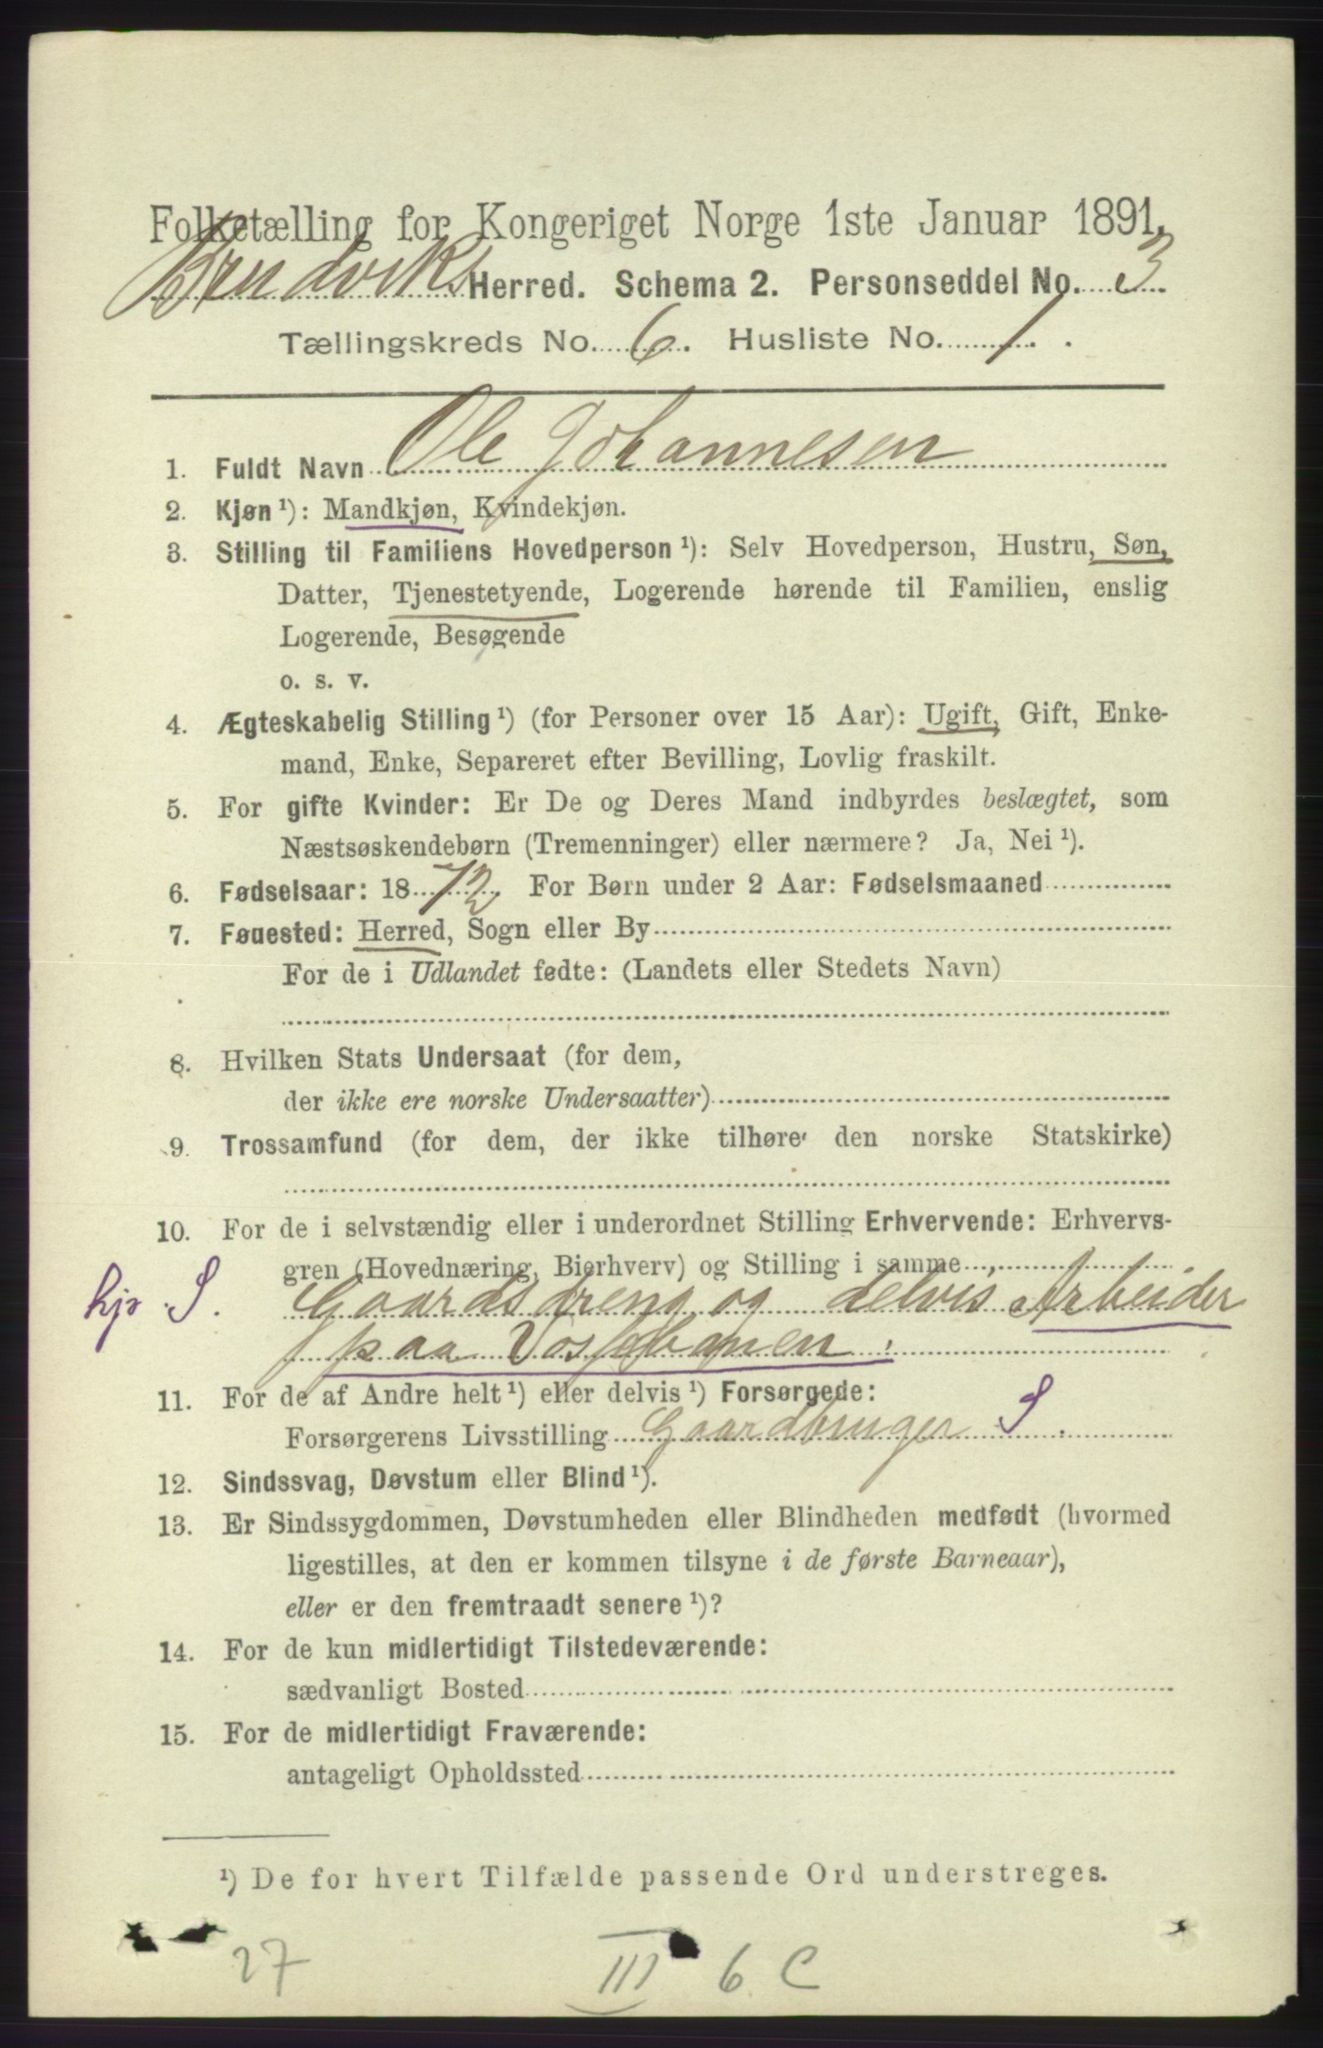 Folketælling for Kongeriget Norge 1ste Januar 1891.
Brudviks Herred. Schema 2. Personseddel No. 3
Tællingskreds No. 6. Husliste No. 1.
1. Fuldt Navn Ole Johannesen
2. Kjøn ¹): Mandkjøn, Kvindekjøn.
3. Stilling til Familiens Hovedperson ¹): Selv Hovedperson, Hustru, Søn,
Datter, Tjenestetyende, Logerende hørende til Familien, enslig
Logerende, Besøgende
o. s. v.
4. Ægteskabelig Stilling ¹) (for Personer over 15 Aar): Ugift, Gift, Enke-
mand, Enke, Separeret efter Bevilling, Lovlig fraskilt.
5. For gifte Kvinder: Er De og Deres Mand indbyrdes beslægtet, som
Næstsøskendebørn (Tremenninger) eller nærmere? Ja, Nei ¹).
6. Fødselsaar: 1872 For Børn under 2 Aar: Fødselsmaaned
7. Føuested: Herred, Sogn eller By
For de i Udlandet fødte: (Landets eller Stedets Navn)
8. Hvilken Stats Undersaat (for dem,
der ikke ere norske Undersaatter)
9. Trossamfund (for dem, der ikke tilhøre den norske Statskirke)
10. For de i selvstændig eller i underordnet Stilling Erhvervende: Erhvervs-
gren (Hovednæring, Bierhverv) og Stilling i samme
hjs S. Gaardsdreng og delvis Arbeider
paa Vossebanen.
11. For de af Andre helt ¹) eller delvis ¹) Forsørgede:
Forsørgerens Livsstilling Gaardbruger S.
12. Sindssvag, Døvstum eller Blind ¹).
13. Er Sindssygdommen, Døvstumheden eller Blindheden medfødt (hvormed
ligestilles, at den er kommen tilsyne i de første Barneaar),
eller er den fremtraadt senere ¹)?
14. For de kun midlertidigt Tilstedeværende:
sædvanligt Bosted
15. For de midlertidigt Fraværende:
antageligt Opholdssted
¹) De for hvert Tilfælde passende Ord understreges.
27 III 6 C